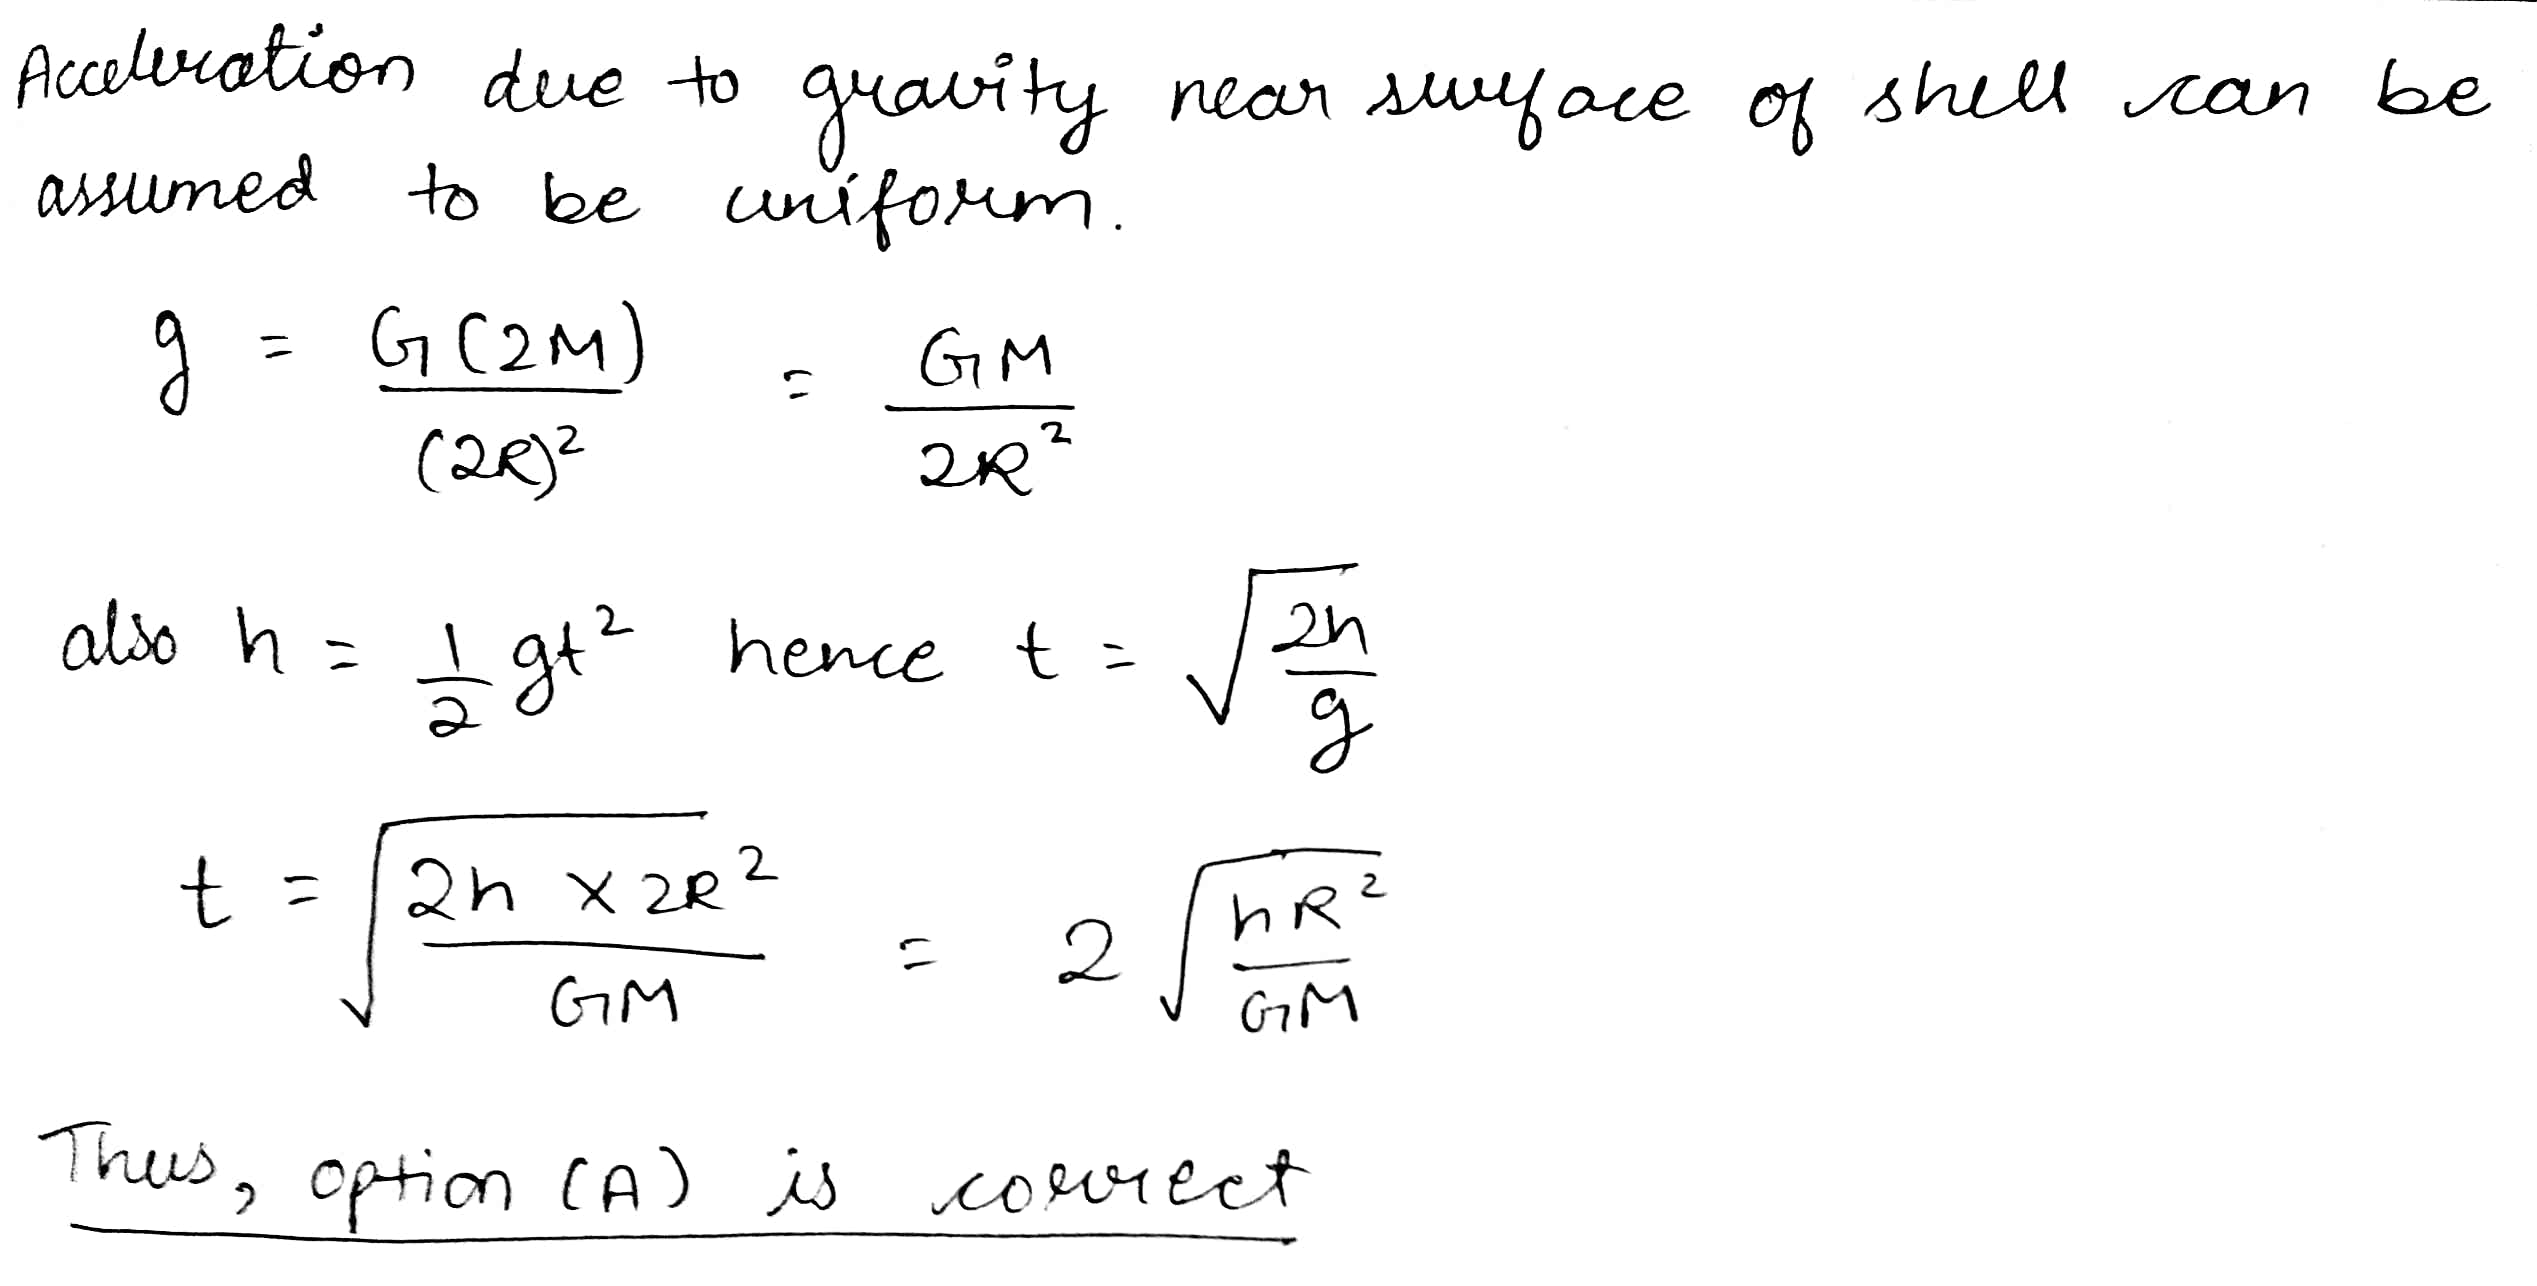 Acceleration due to gravity near surface of shell can be
assumed to be uniform.
g = G(2M) / (2R)² = GM / 2R²
also h = 1/2 gt² hence t = √(2h/g)
t = √(2h × 2R² / GM) = 2 √(hR² / GM)
Thus, option (A) is correct